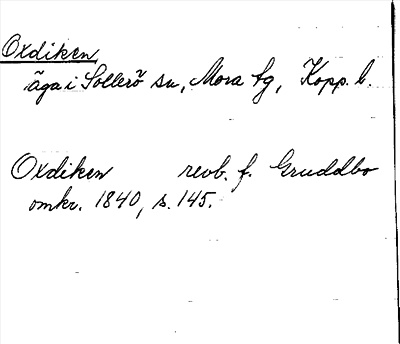 Oxdiken
äga i Sollerö sn, Mora tg, Kopp. l.
Oxdiken revb. f. Gruddbo
omkr. 1840, s. 145.